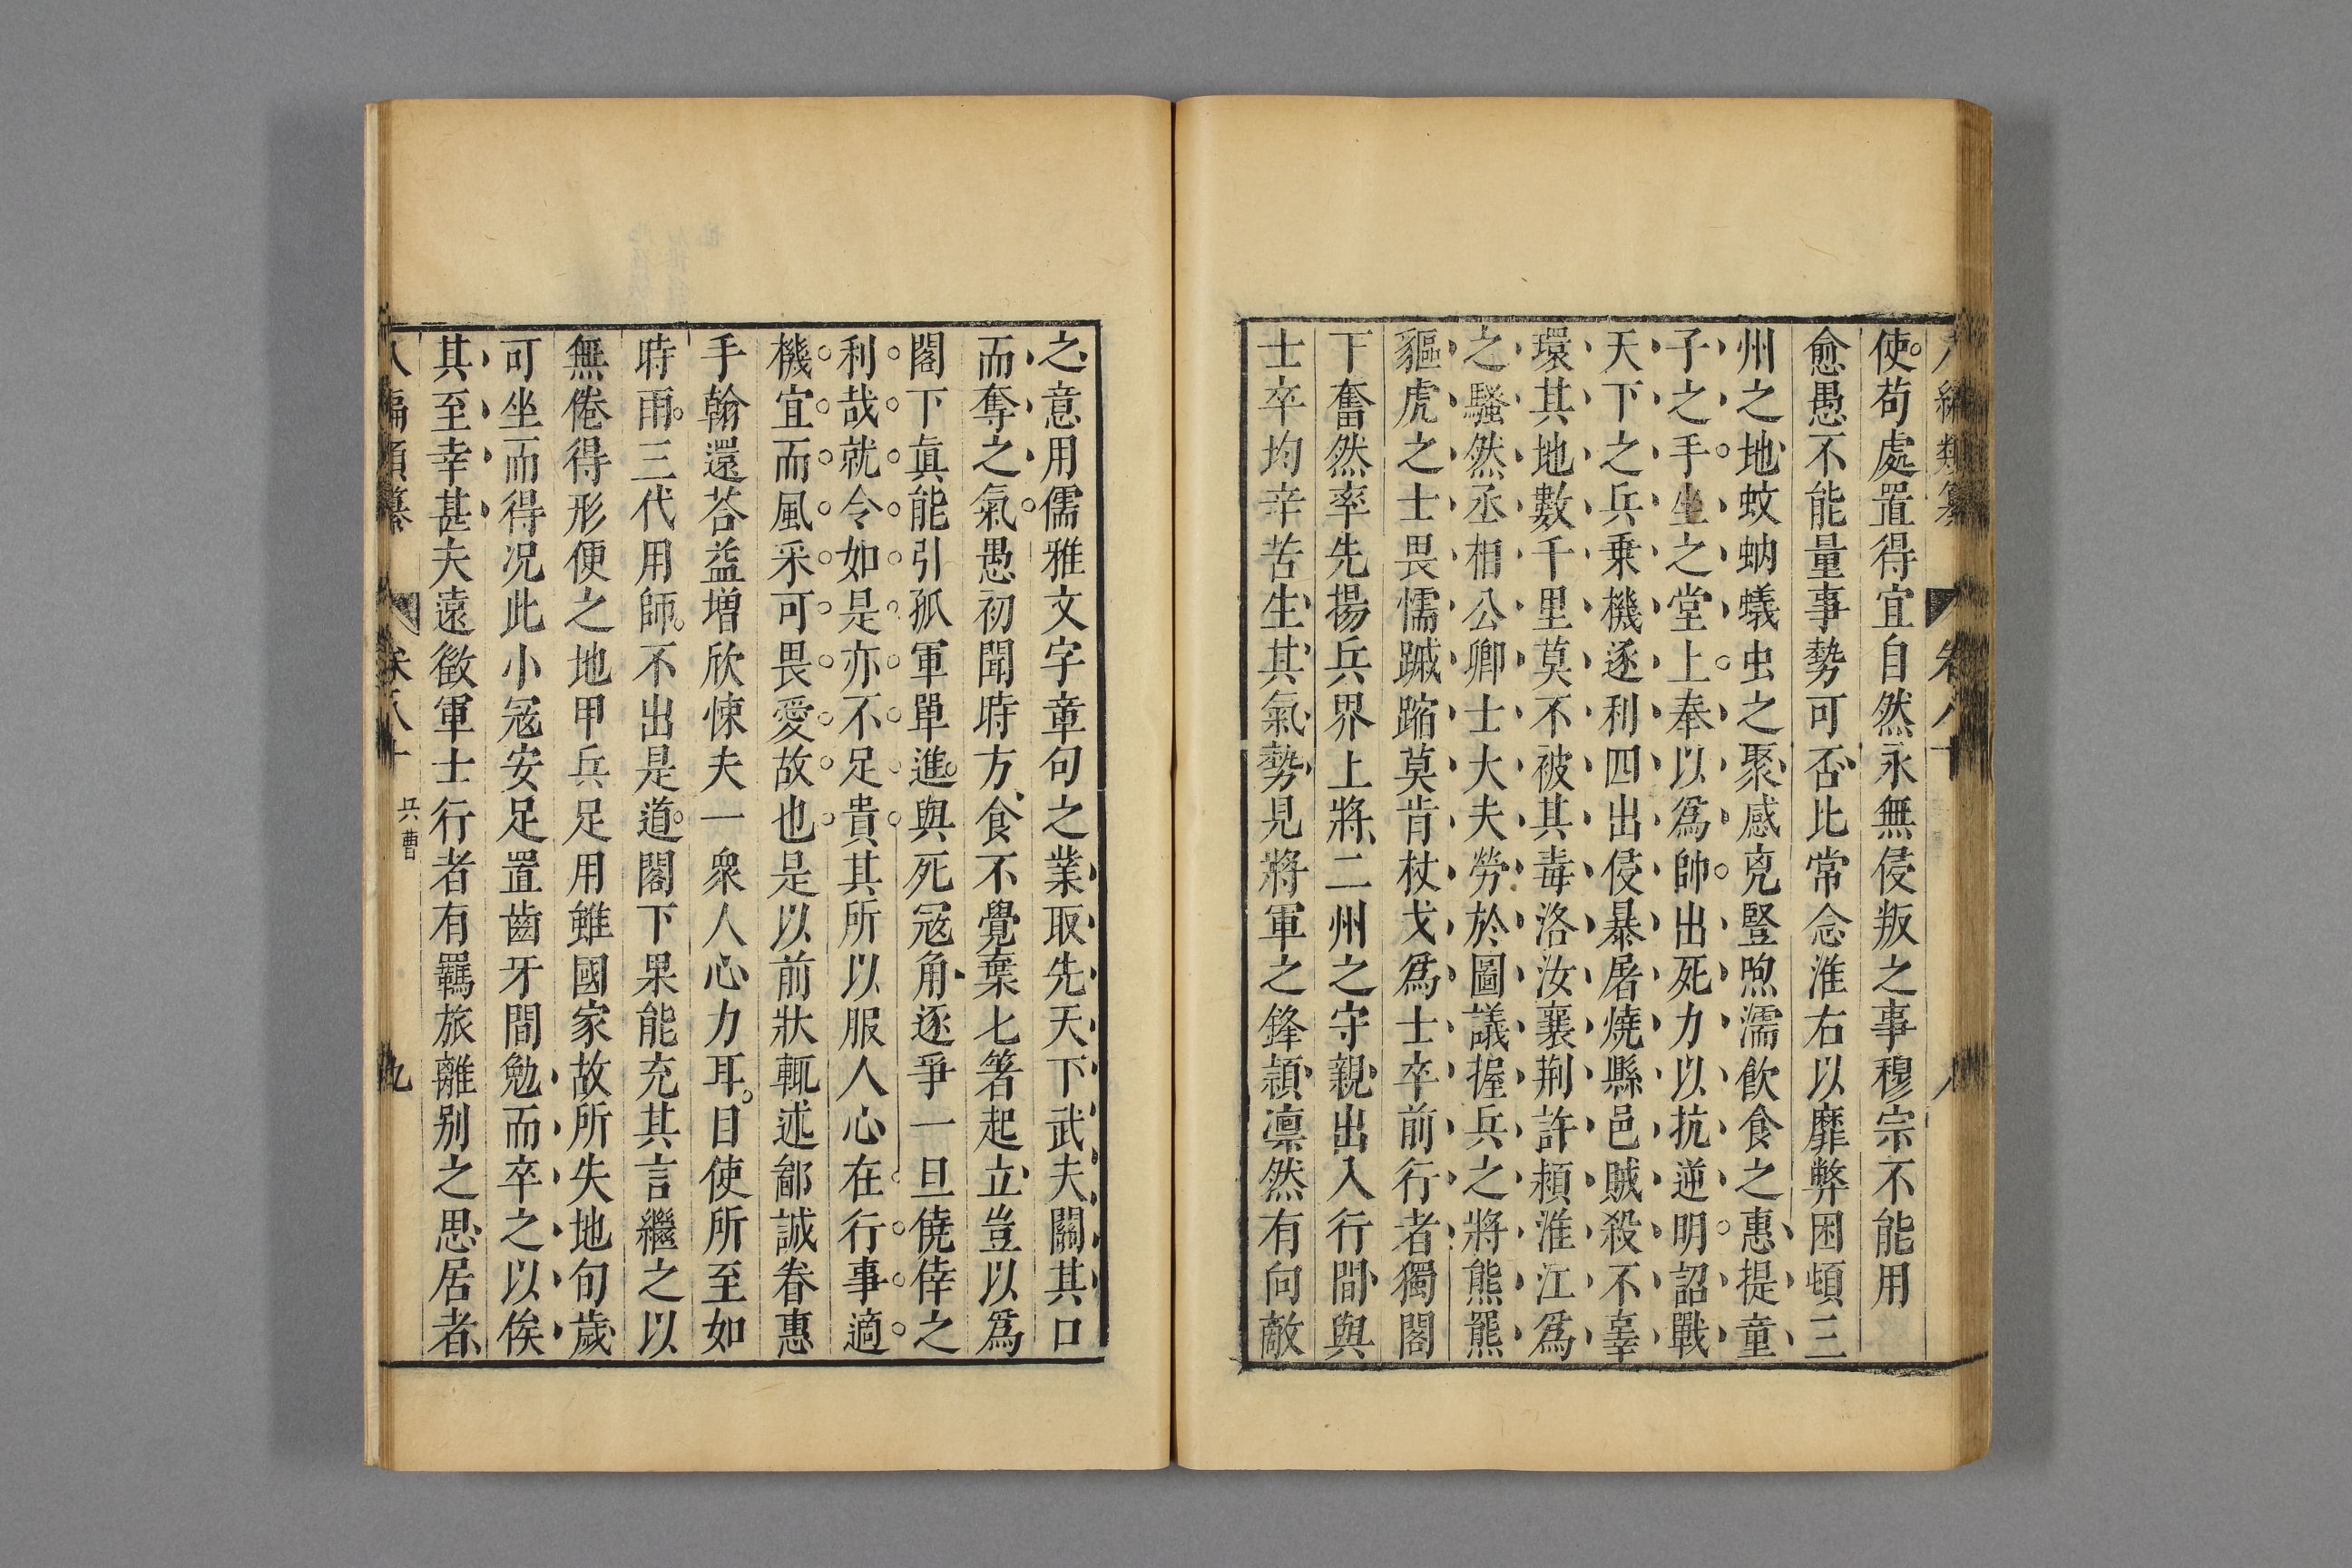 八編類纂 卷八十 八
使苟處置得宜自然永無侵叛之事穆宗不能用
愈愚不能量事勢可否比常念淮右以靡弊困頓三
州之地蚊蚋蟻虫之聚感兇豎煦濡飲食之惠提童
子之手坐之堂上奉以爲帥出死力以抗逆明詔戰
天下之兵乗機逐利四出侵暴屠燒縣邑賊殺不辜
環其地數千里莫不被其毒洛汝襄荆許頴淮江爲
之騷然丞相公卿士大夫勞於圖議握兵之將熊羆
貙虎之士畏懦蹴蹜莫肯杖戈爲士卒前行者獨閣
下奮然率先揚兵界上將二州之守親出入行間與
士卒均辛苦生其氣勢見將軍之鋒頴凛然有向敵
之意用儒雅文字章句之業取先天下武夫關其口
而奪之氣愚初聞時方食不覺棄匕箸起立豈以爲
閣下眞能引孤軍單進與死寇角逐爭一旦僥倖之
利哉就令如是亦不足貴其所以服人心在行事適
機宜而風采可畏愛故也是以前狀輒述鄙誠眷惠
手翰還荅益增欣悚夫一衆人心力耳目使所至如
時雨三代用師不出是道閣下果能充其言繼之以
無倦得形便之地甲兵足用雖國家故所失地旬歲
可坐而得况此小寇安足置齒牙間勉而卒之以俟
其至幸甚夫遠徵軍士行者有羇旅離别之思居者
八編類纂 卷八十 兵曹 九